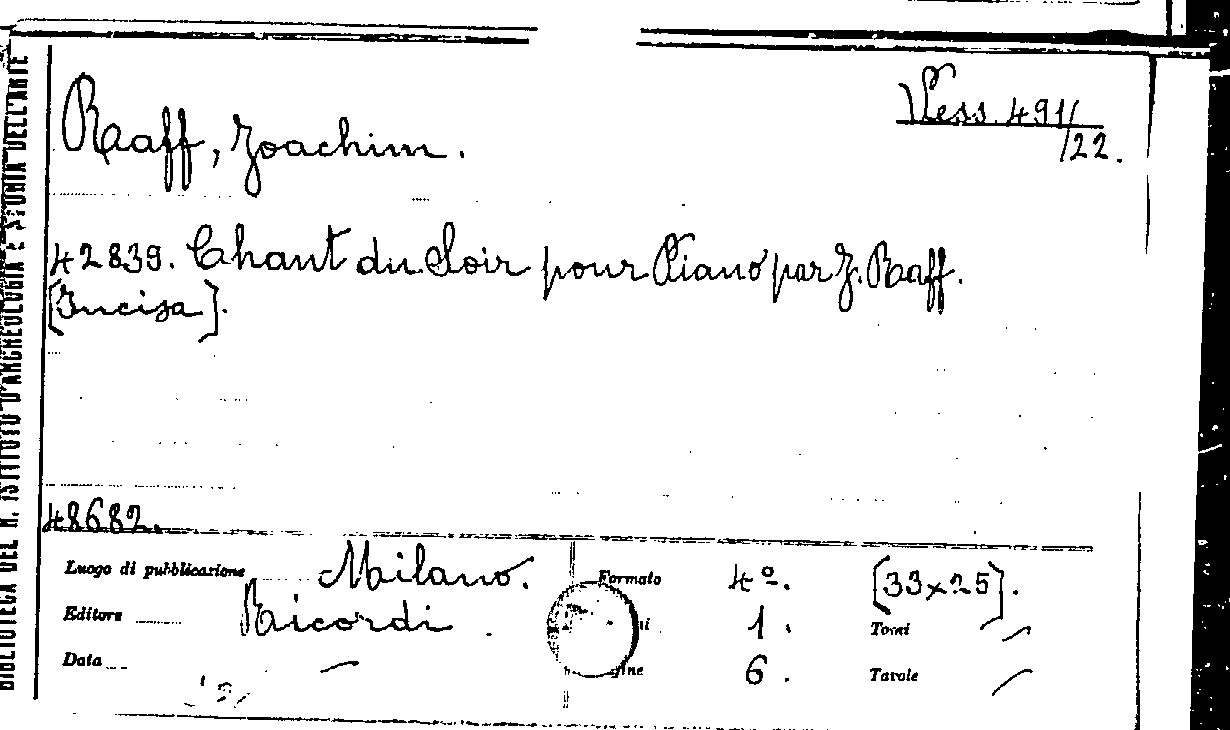 BIBLIOTECA DEL R. ISTITUTO D'ARCHEOLOGIA E STORIA DELL'ARTE
Raaff, Joachim.
Vess. 491/
/22.
42839. Chant du Soir pour Piano par J. Raaff.
[Incisa].
48682.
Luogo di pubblicazione Milano. Formato 4º. [33x25].
Editore Ricordi. 1. Tomi —
Data — gine 6. Tavole —